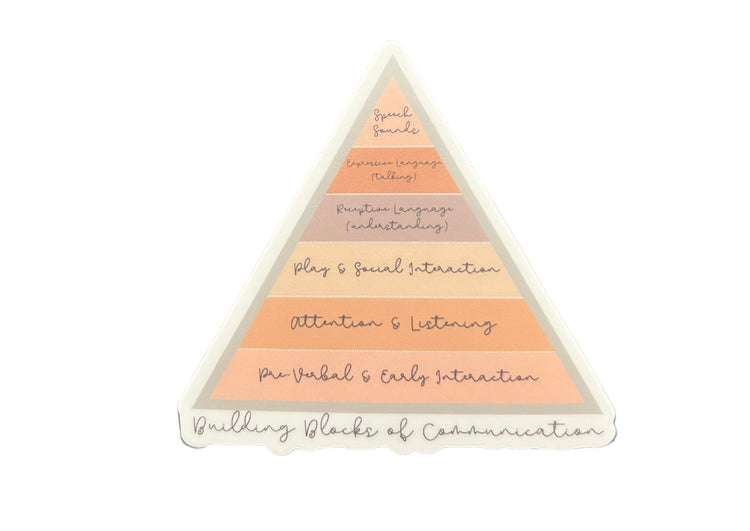 Speech
Sounds
Expressive Language
(talking)
Receptive Language
(understanding)
Play & Social Interaction
Attention & Listening
Pre-Verbal & Early Interaction
Building Blocks of Communication